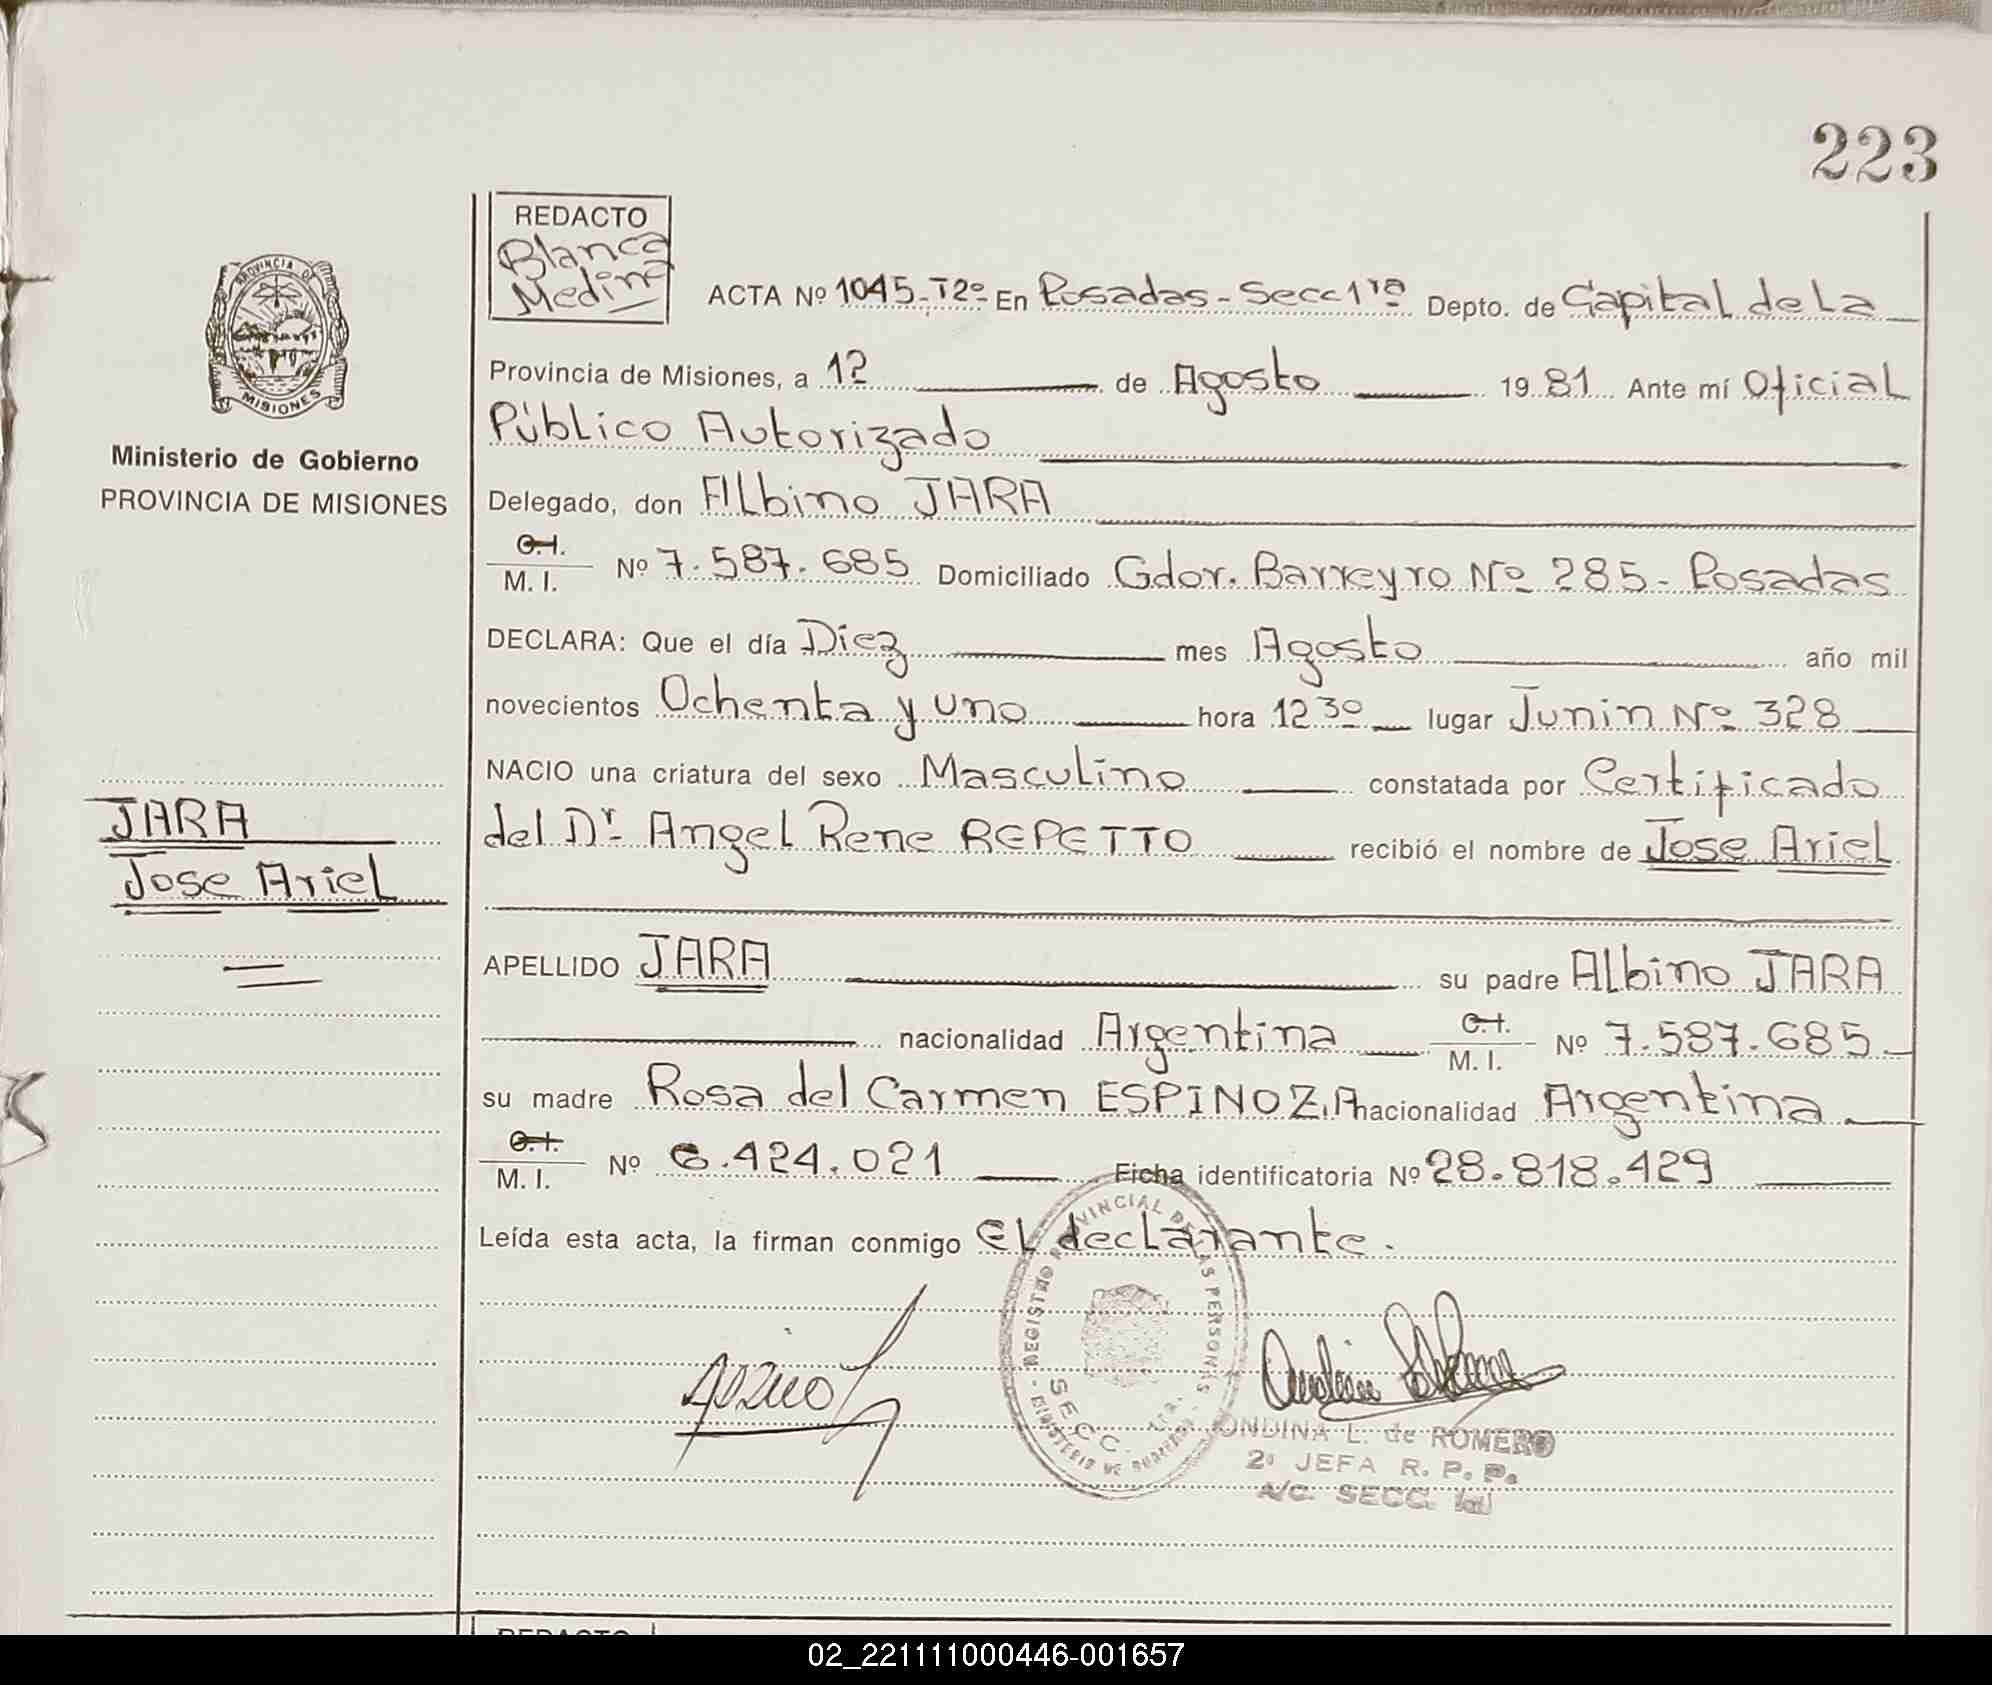 223
REDACTO
Blanca
Medina
PROVINCIA DE
MISIONES
Ministerio de Gobierno
PROVINCIA DE MISIONES
ACTA Nº 1045-T2º- En Posadas - Secc 1ra Depto. de Capital de La
Provincia de Misiones, a 12 de Agosto 19 81 Ante mí Oficial
Público Autorizado
Delegado, don Albino JARA
C.I.
M. I. Nº 7.587.685 Domiciliado Gdor. Barreyro Nº 285- Posadas
DECLARA: Que el día Diez mes Agosto año mil
novecientos Ochenta y uno hora 12 30 lugar Junin Nº 328
NACIO una criatura del sexo Masculino constatada por Certificado
del Dr. Angel Rene REPETTO recibió el nombre de Jose Ariel
JARA
Jose Ariel
APELLIDO JARA su padre Albino JARA
nacionalidad Argentina C.I.
M. I. Nº 7.587.685
su madre Rosa del Carmen ESPINOZA nacionalidad Argentina
C.I.
M. I. Nº 6.424.021 Ficha identificatoria Nº 28.818.429
Leída esta acta, la firman conmigo el declarante.
REGISTRO PROVINCIAL DE LAS PERSONAS
SECC. 1ra.
MINISTERIO DE GOBIERNO
ONDINA L. de ROMERO
2ª JEFA R. P. P.
A/C. SECC. 1a
REDACTO
02_221111000446-001657